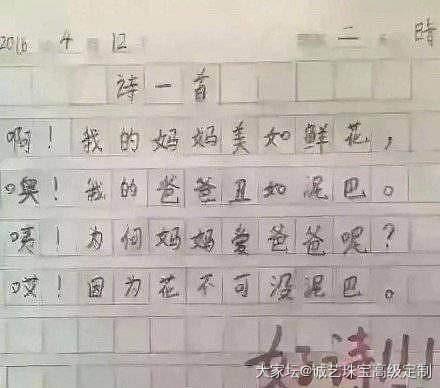 2016 4 12 二 晴
诗一首
啊！我的妈妈美如鲜花，
噢！我的爸爸丑如泥巴。
咦！为何妈妈爱爸爸呢？
哎！因为花不可没泥巴。
好诗!!!
大家坛@诚艺珠宝高级定制